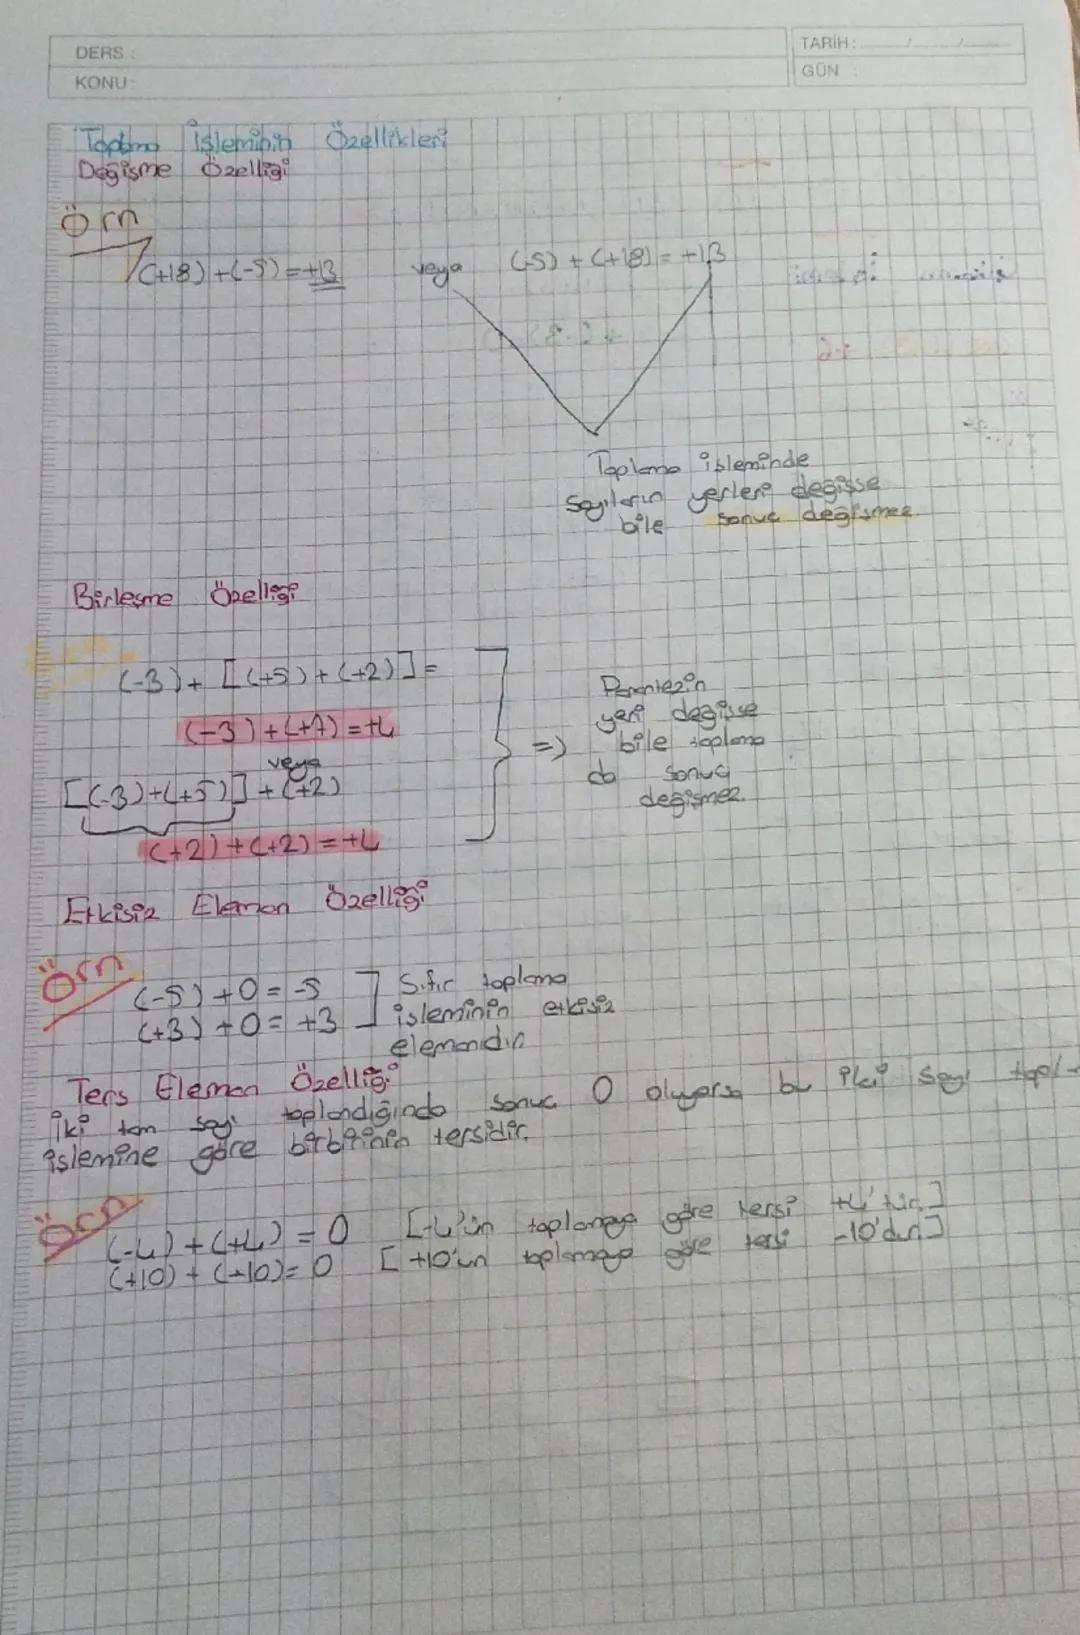 DERS :
KONU:
TARİH: / /
GÜN :
Toplama İşleminin Özellikleri
Değişme Özelliği
Örn
(+18)+(-5)=+13 veya (-5)+(+18)=+13
Toplama işleminde
sayıların yerleri değişse
bile sonuc değişmez
Birleşme Özelliği
(-3)+[(+5)+(+2)]=
(-3)+(+7)=+4
veya
[(-3)+(+5)]+(+2)
(+2)+(+2)=+4
=> Parentezin
yeri değişse
bile toplama
da sonuç
değişmez.
Etkisiz Eleman Özelliği
Örn
(-5)+0=-5
(+3)+0=+3
Sıfır toplama
işleminin etkisiz
elemanıdır
Ters Eleman Özelliği
İki tam sayı toplandığında sonuc 0 oluyorsa bu iki sayı topl-
işlemine göre birbirinin tersidir.
Örn
(-4)+(+4)=0 [-4'ün toplamaya göre tersi +4'tür.]
(+10)+(-10)=0 [+10'un toplamaya göre tersi -10'dur.]